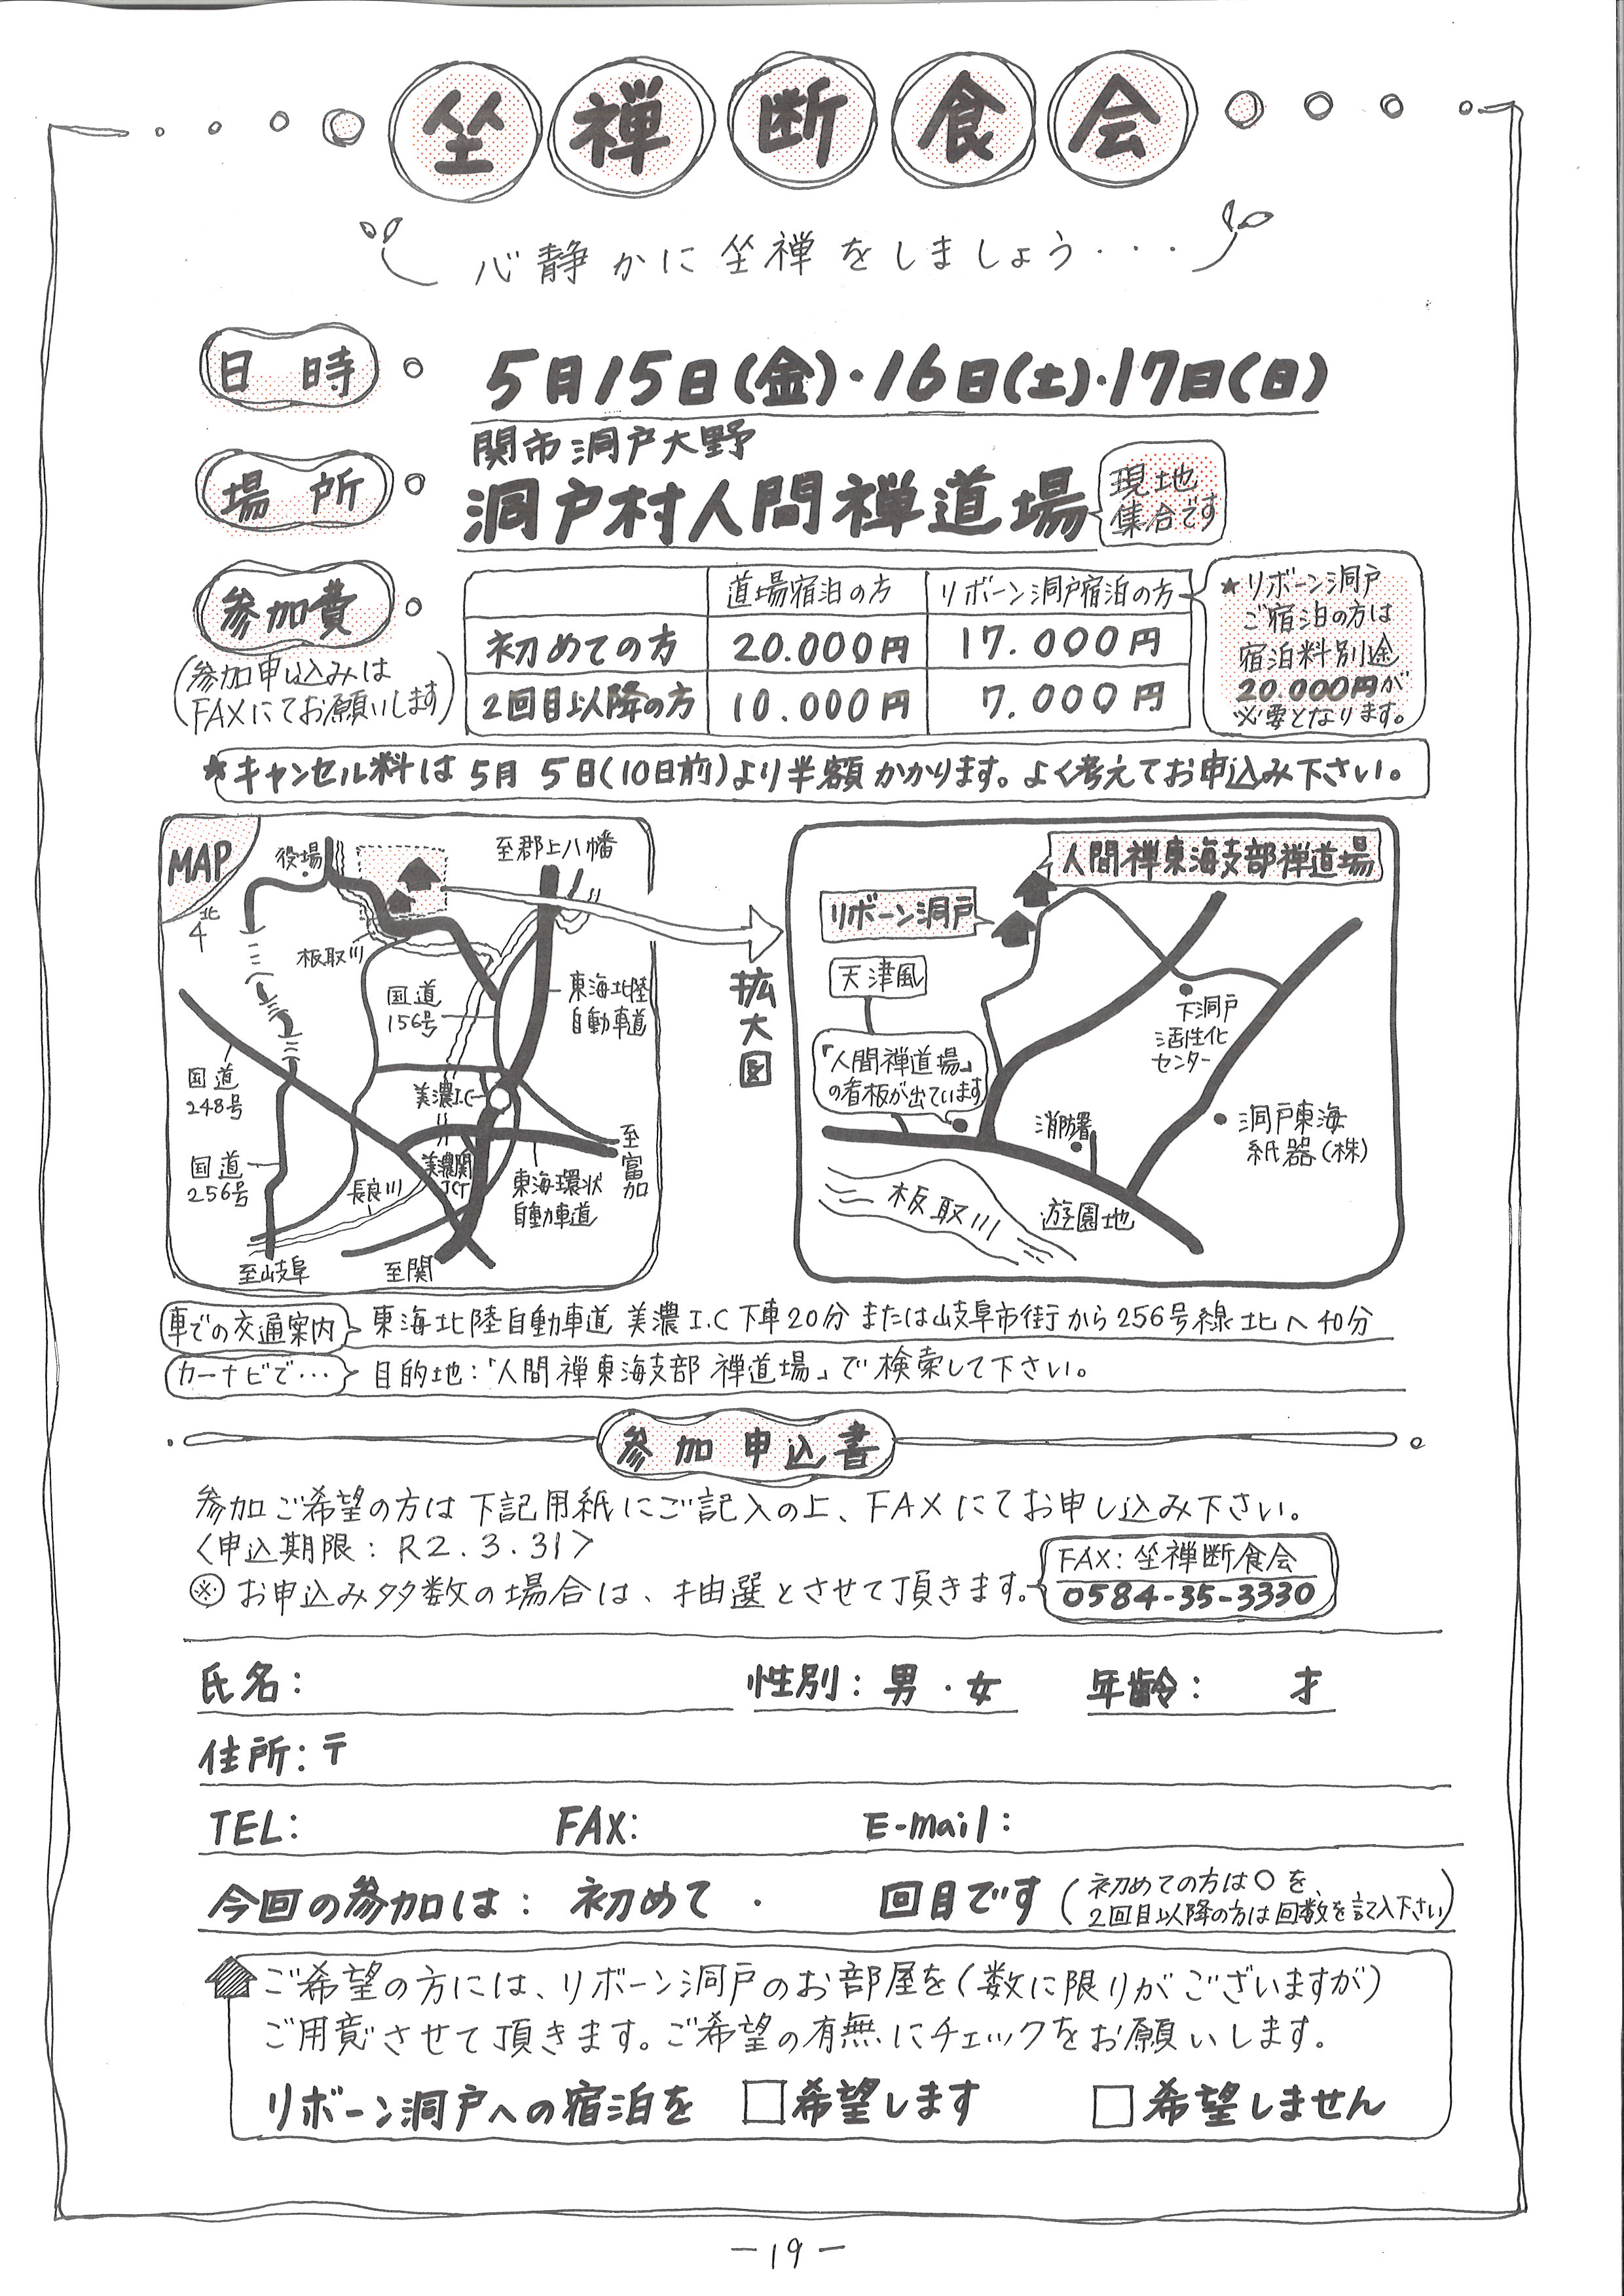 坐禅断食会
心静かに坐禅をしましょう・・・
日時
5月15日(金)・16日(土)・17日(日)
場所
関市洞戸大野
洞戸村人間禅道場
現地
集合です
参加費
(参加申し込みは
FAXにてお願いします)
道場宿泊の方 リボーン洞戸宿泊の方
初めての方 20.000円 17.000円
2回目以降の方 10.000円 7.000円
★リボーン洞戸
ご宿泊の方は
宿泊料別途
20.000円が
必要となります。
★キャンセル料は5月5日(10日前)より半額かかります。よく考えてお申込み下さい。
MAP
北
役場
至郡上八幡
板取川
国道
156号
東海北陸
自動車道
国道
248号
美濃I.C
国道
256号
長良川
美濃関
JCT
東海環状
自動車道
至富加
至岐阜
至関
拡大図
人間禅東海支部禅道場
リボーン洞戸
天津風
「人間禅道場」
の看板が出ています
下洞戸
活性化
センター
消防署
洞戸東海
紙器(株)
板取川
遊園地
車での交通案内 東海北陸自動車道 美濃I.C下車20分 または岐阜市街から256号線北へ40分
カーナビで・・・ 目的地:「人間禅東海支部 禅道場」で検索して下さい。
参加申込書
参加ご希望の方は下記用紙にご記入の上、FAXにてお申し込み下さい。
<申込期限:R2.3.31>
※お申込み多数の場合は、抽選とさせて頂きます。
FAX:坐禅断食会
0584-35-3330
氏名: 性別:男・女 年齢: 才
住所:〒
TEL: FAX: E-mail:
今回の参加は:初めて・ 回目です(初めての方は○を、
2回目以降の方は回数を記入下さい)
ご希望の方には、リボーン洞戸のお部屋を(数に限りがございますが)
ご用意させて頂きます。ご希望の有無にチェックをお願いします。
リボーン洞戸への宿泊を □希望します □希望しません
-19-